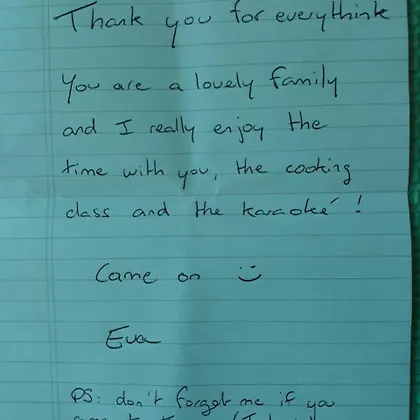 Thank you for everythink
You are a lovely family
and I really enjoy the
time with you, the cooking
class and the karaoké !
Came on :)
Eva
PS: don't forget me if you